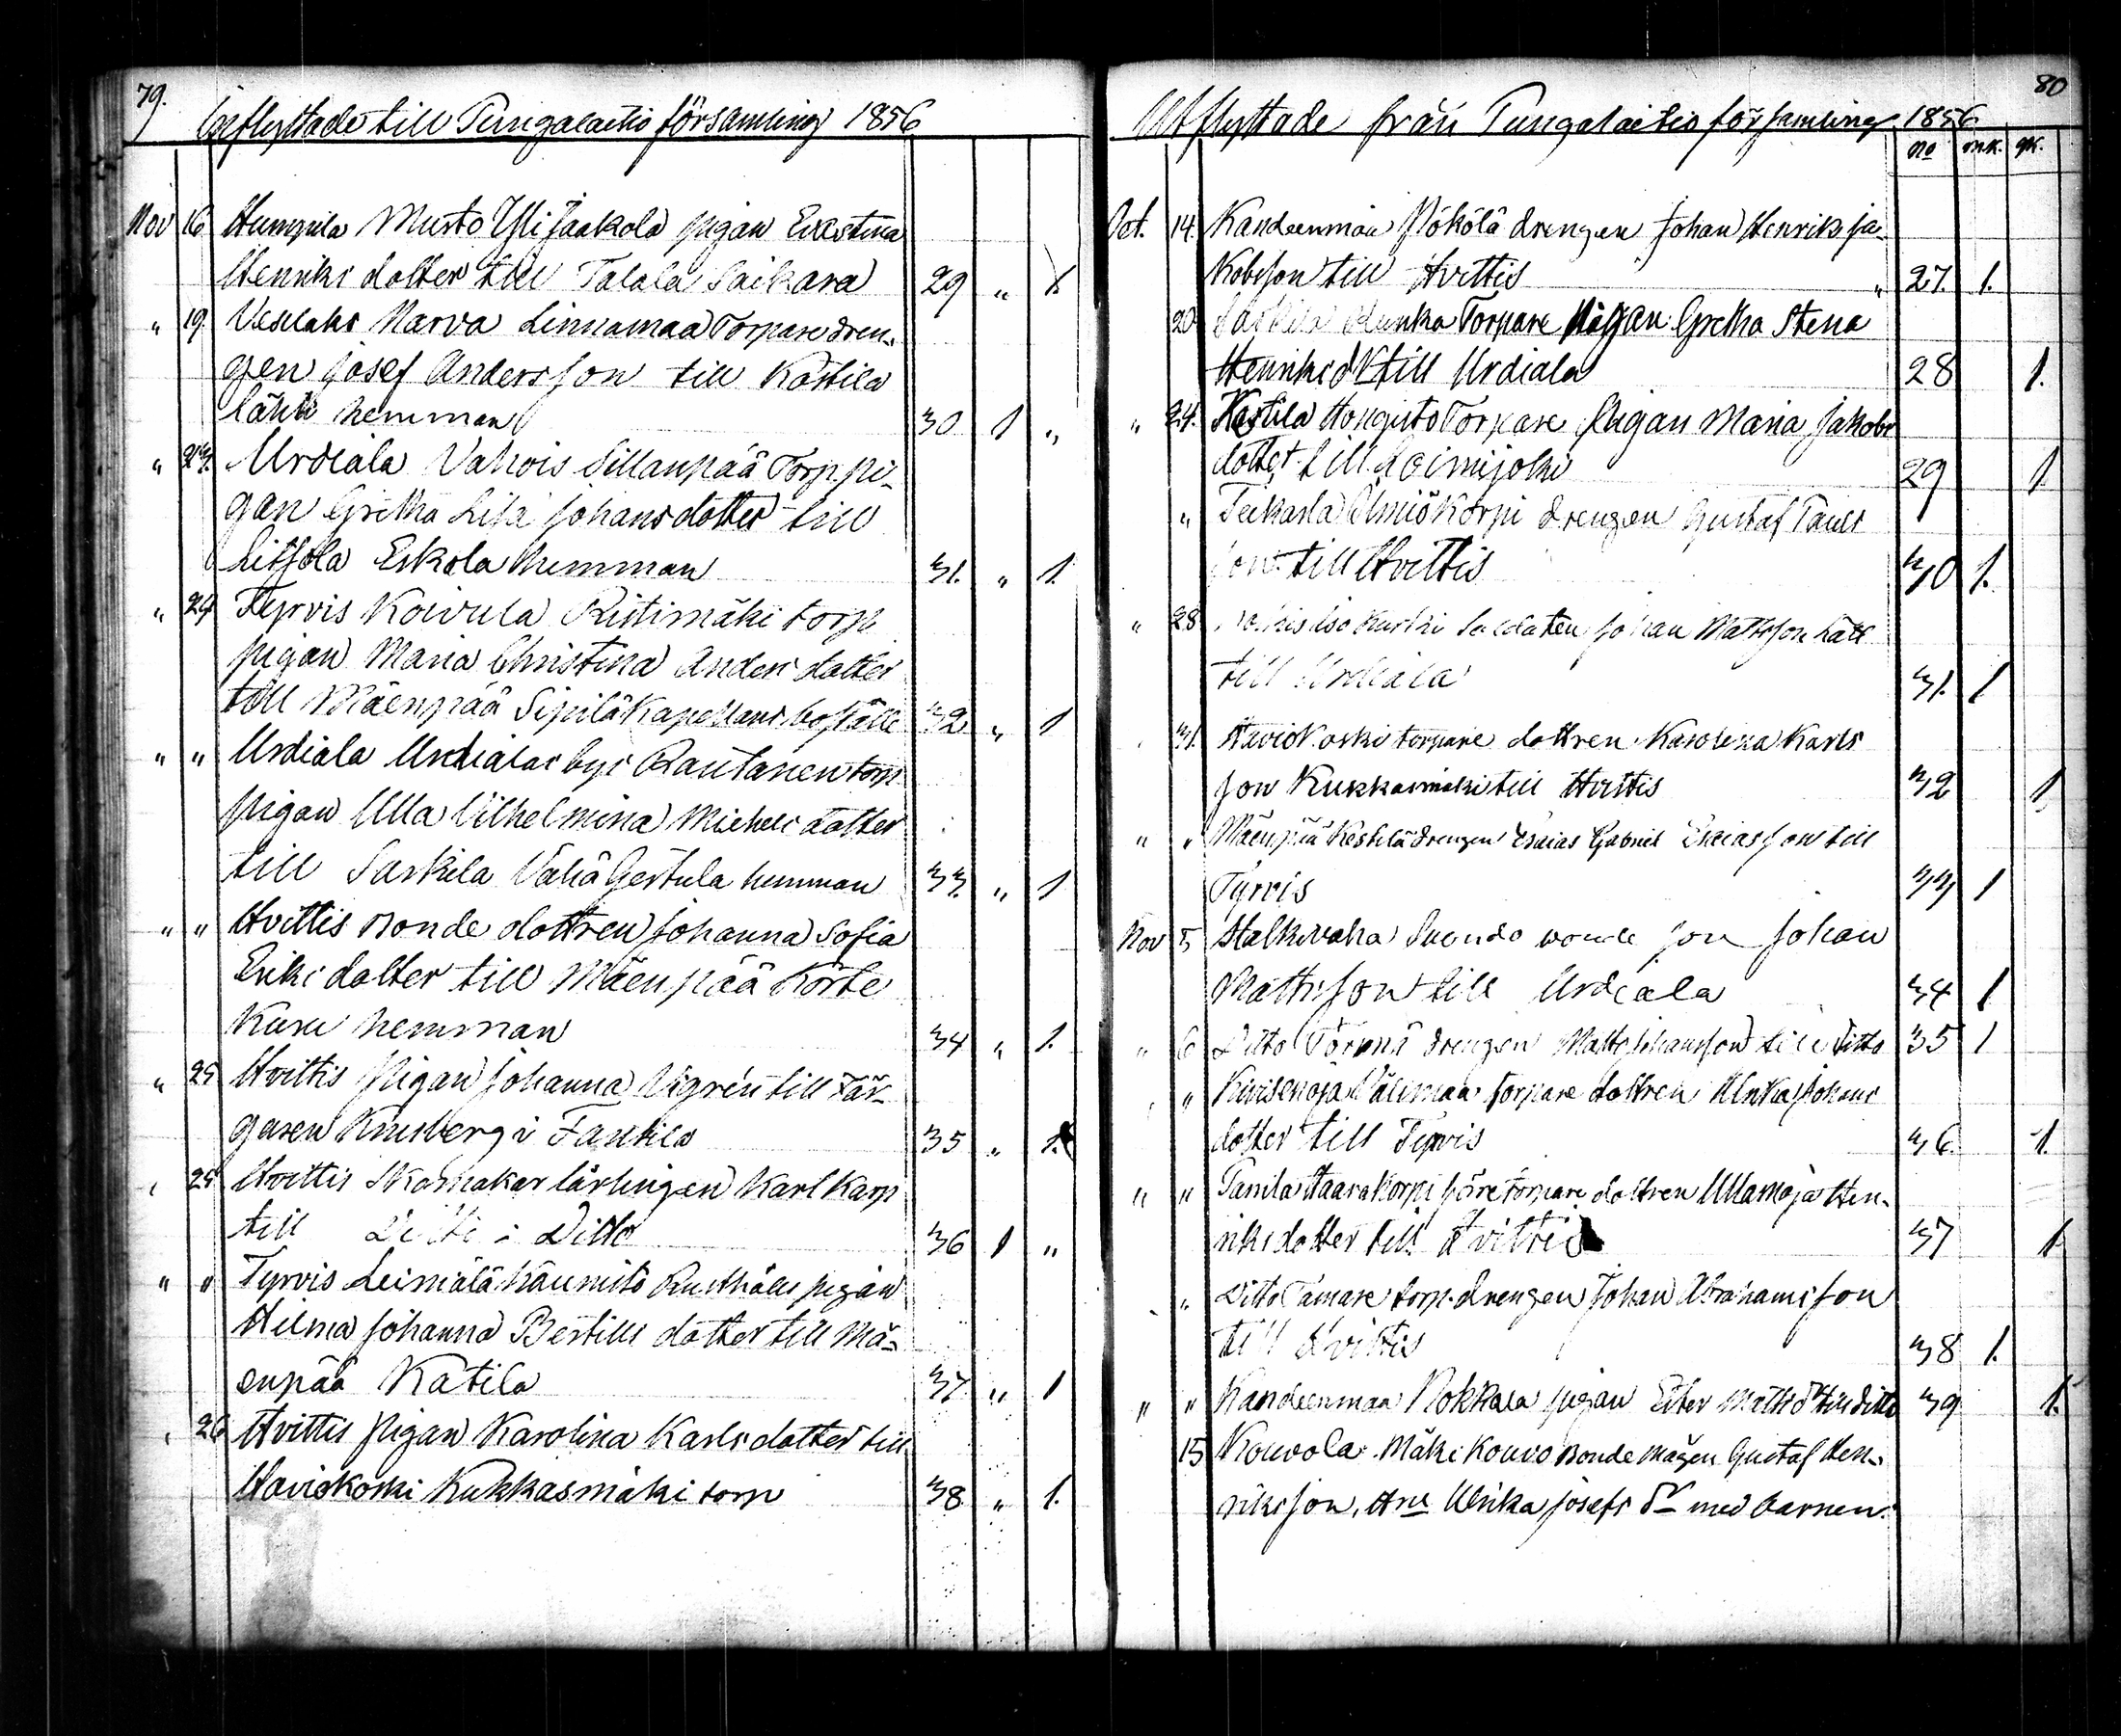 79.
Inflyttade till Pungalaitio församling 1856
Nov 16 Humpila Murto Yli Jaakola pigan Eva Stina
Henriks dotter till Talala Saikara 29 " 1.
" 19. Vesilaks Narva Linnamaa Torpare dren-
gen Josef Andersson till Kostila
Lähti hemman 30 1 "
" 23. Urdiala Vahois Sillanpää Torp. pi-
gan Gretha Lisa Johansdotter till
Litsola Eskola hemman 31. " 1.
" 24 Tyrvis Koivula Ristimäki torp
pigan Maria Christina Anders dotter
till Mäenpää Sipilä Kapellans boställe 32 " 1
" " Urdiala Urdialas by Rautanen torp.
pigan Ulla Vilhelmina Michels dotter
till Sarkila Vähä Gertula hemman 33. " 1
" " Hvittis Bonde dottren Johanna Sofia
Eriks dotter till Mäenpää Körte
Kusu hemman 34 " 1.
" 25 Hvittis Pigan Johanna Vigrén till Fär-
garen Kinsberg i Fankila 35 " 1.
" 25 Hvittis Skomakar lärlingen Karl Karp
till Ditto i Ditto 36 1 "
" " Tyrvis Leimälä Kaunisto Rusthålls pigan
Hilma Johanna Bertills dotter till Mä-
enpää Katila 37 " 1
" 26 Hvittis Pigan Karolina Karls dotter till
Haviokoski Kukkasmäki torp 38 " 1.
80
Utflyttade från Pungalaitio församling 1856
No mk. qk.
Oct. 14. Kandeenmaa Pökölä drengen Johan Henrik Ja-
kobsson till Hvittis " 27. 1.
20 Sarkila Torpare Pigan Gretha Stena
Henriksdr till Urdiala 28 1.
" 24. Kostila Hongisto Torpare Pigan Maria Jakobs
dotter till Loimijoki 29 1
" Teikarla Elmiö Korpi drengen Gustaf Pauls
son till Hvittis 30 1.
" 28 Iso Kurki Soldaten Johan Mattsson Lätt
till Urdiala 31. 1
31. Haviokoski torpare dottren Karolina Karls
son Kukkasmäki till Hvittis 32 1
" " Mäenpää Kestilä drengen Esaias Gabriel Esaiasson till
Tyrvis 33 1
Nov 5 Halkivaha Suondo bonde son Johan
Mattsson till Urdiala 34 1
" 6 Ditto Törmä drengen Matts Johansson till Ditto 35 1
" " Kivisenoja Välimaa torpare dottren Ulrika Johans
dotter till Tyrvis 36. 1.
" " Tanila Haarakorpi förre torpare dottren Ulla Maja Hen-
riksdotter till Hvittis 37 1
" Ditto Tamare torp. drengen Johan Abrahamsson
till Hvittis 38 1.
" " Kandeenmaa Nokkala pigan Ester Mattsdr till ditto 39 1.
15 Kouvola Mäki Kouvo Bonde mågen Gustaf Hen-
riksson, Hru Ulrika Josefs dr med barnen: